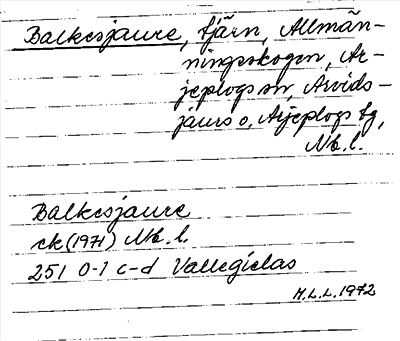 Balkesjaure, tjärn, Allmän-
ningsskogen, Ar-
jeplogs sn, Arvids-
jaurs o. Arjeplogs tg,
Nb. l.
Balkesjaure
ek (1971) Nb. l.
25I 0-1 c-d Vallegielas
M.L.L. 1972